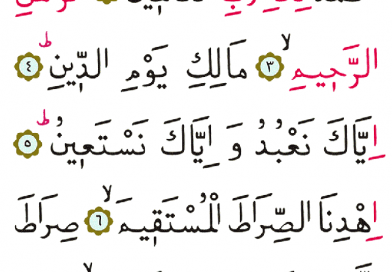 الرَّحٖيمِۙ ﴿٣﴾ مَالِكِ يَوْمِ الدّٖينِؕ ﴿٤﴾
اِيَّاكَ نَعْبُدُ وَ اِيَّاكَ نَسْتَعٖينُؕ ﴿٥﴾
اِهْدِنَا الصِّرَاطَ الْمُسْتَقٖيمَۙ ﴿٦﴾ صِرَاطَ